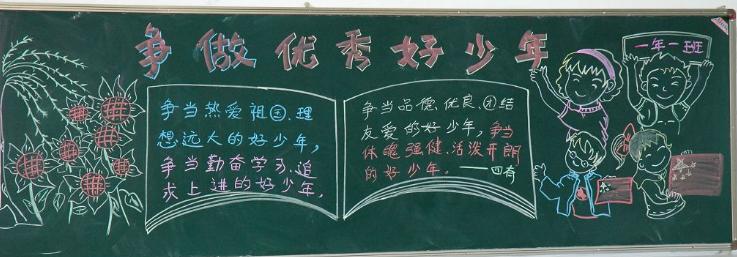 争做优秀好少年
一年一班
争当热爱祖国、理
想远大的好少年，
争当勤奋学习、追
求上进的好少年，
争当品德优良、团结
友爱的好少年，争当
体魄强健、活泼开朗
的好少年。——四有